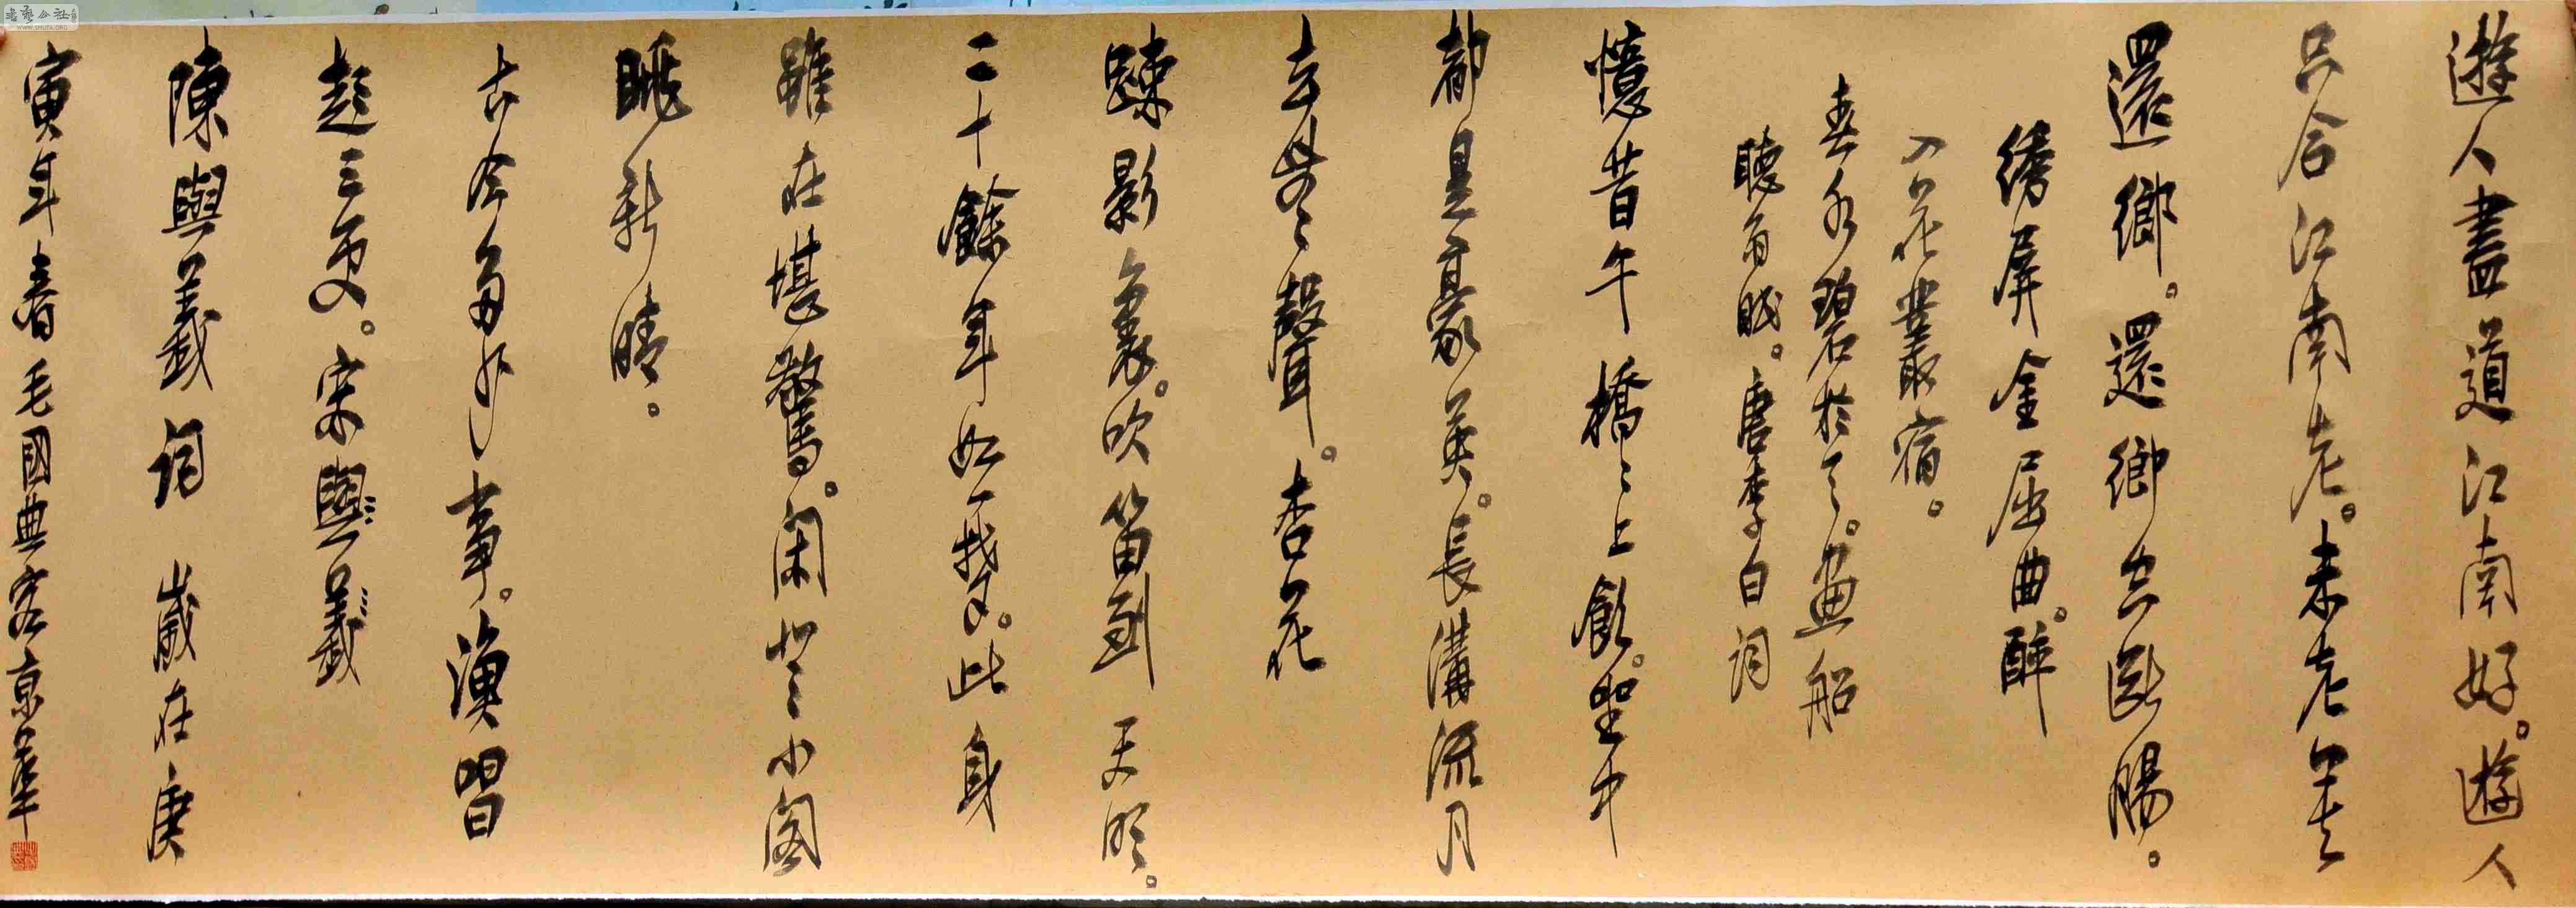 遊人盡道江南好。遊人
只合江南老。未老
還鄉。還鄉空斷腸。
綉屏金屈曲。醉
入花叢宿。
春水碧於天。畫船
聽雨眠。唐李白詞
憶昔午橋〻上飲。坐中
都是豪英。長溝流月
去無聲。杏花
疎影裏。吹笛到天明。
二十餘年如一夢。此身
雖在堪驚。閑登小閣
眺新晴。
古今多少事。漁唱
起三更。宋與義
陳與義詞 歲在庚
寅年春毛國典客京華